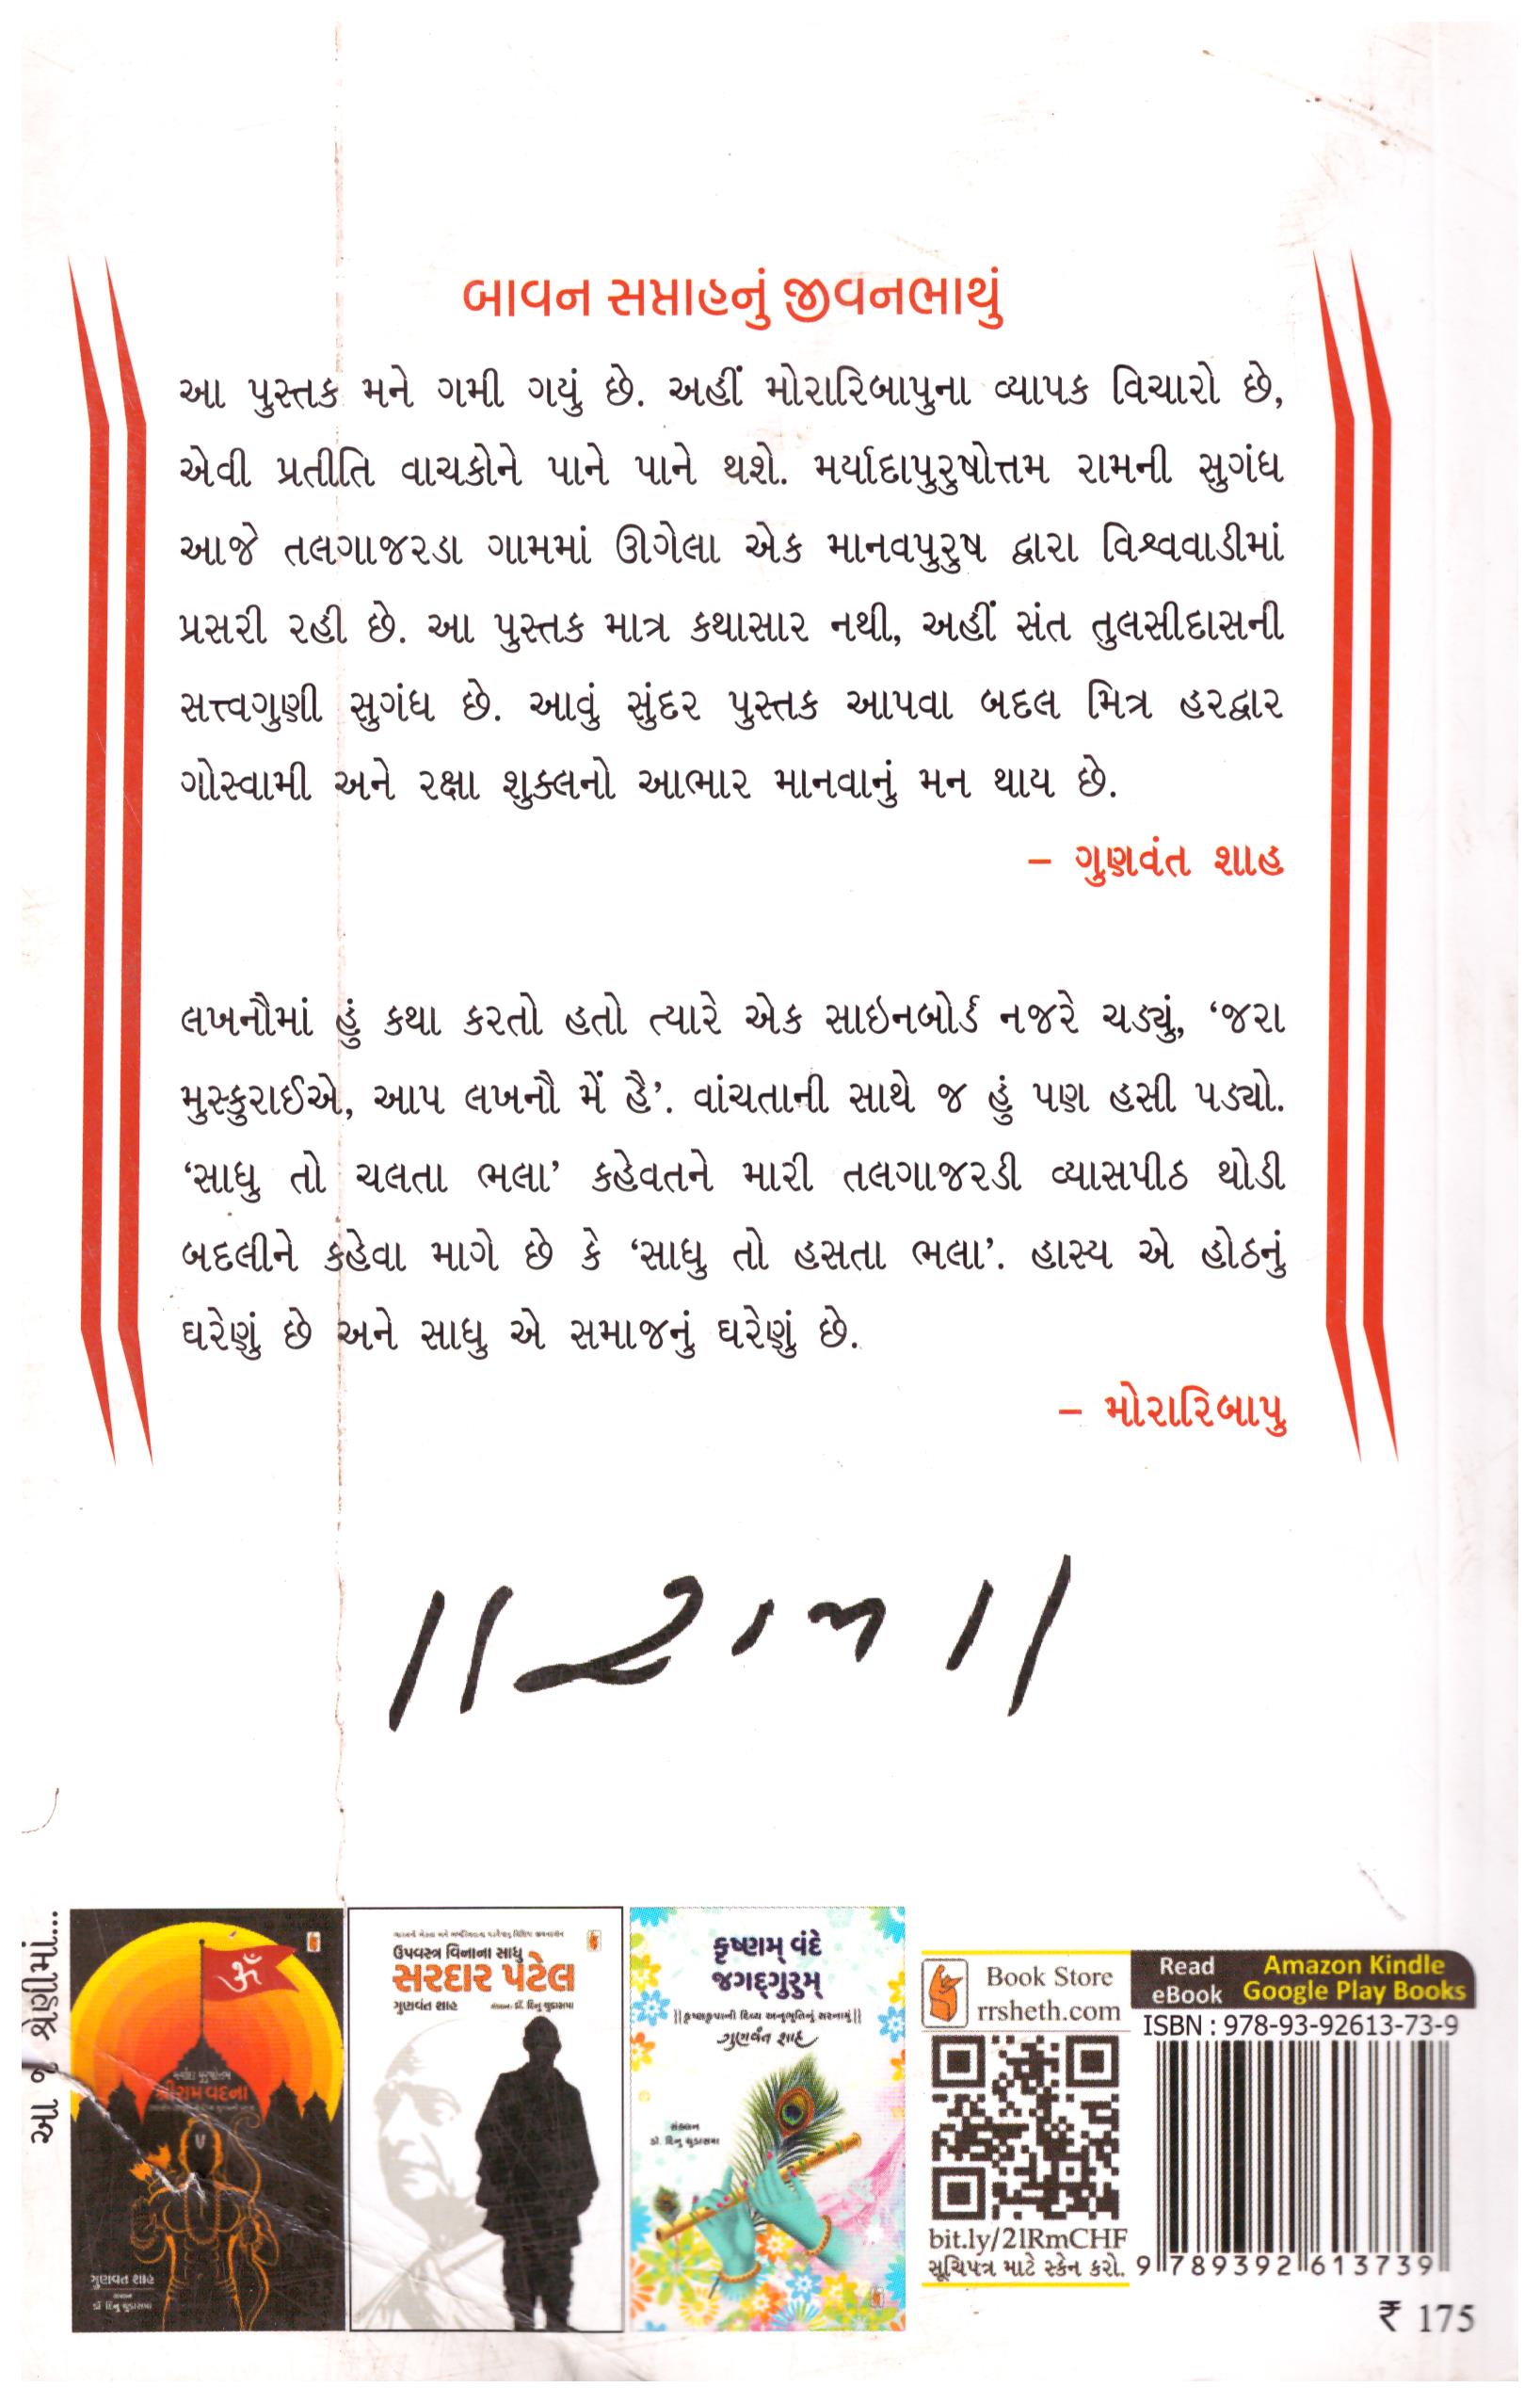 બાવન સપ્તાહનું જીવનભાથું
આ પુસ્તક મને ગમી ગયું છે. અહીં મોરારિબાપુના વ્યાપક વિચારો છે,
એવી પ્રતીતિ વાચકોને પાને પાને થશે. મર્યાદાપુરુષોત્તમ રામની સુગંધ
આજે તલગાજરડા ગામમાં ઊગેલા એક માનવપુરુષ દ્વારા વિશ્વવાડીમાં
પ્રસરી રહી છે. આ પુસ્તક માત્ર કથાસાર નથી, અહીં સંત તુલસીદાસની
સત્ત્વગુણી સુગંધ છે. આવું સુંદર પુસ્તક આપવા બદલ મિત્ર હરદ્વાર
ગોસ્વામી અને રક્ષા શુક્લનો આભાર માનવાનું મન થાય છે.
– ગુણવંત શાહ
લખનૌમાં હું કથા કરતો હતો ત્યારે એક સાઇનબોર્ડ નજરે ચડ્યું, ‘જરા
મુસ્કુરાઈએ, આપ લખનૌ મેં હૈ’. વાંચતાની સાથે જ હું પણ હસી પડ્યો.
‘સાધુ તો ચલતા ભલા’ કહેવતને મારી તલગાજરડી વ્યાસપીઠ થોડી
બદલીને કહેવા માગે છે કે ‘સાધુ તો હસતા ભલા’. હાસ્ય એ હોઠનું
ઘરેણું છે અને સાધુ એ સમાજનું ઘરેણું છે.
– મોરારિબાપુ
||રામ||
આ જ શ્રેણીમાં...
ૐ
મર્યાદા પુરુષોત્તમ
શ્રીરામ વંદના
ગુણવંત શાહ
ડૉ. દિનુ ચુડાસમા
ઉપવસ્ત્ર વિનાના સાધુ
સરદાર પટેલ
ગુણવંત શાહ
સંકલન: ડૉ. દિનુ ચુડાસમા
કૃષ્ણમ્ વંદે
જગદ્ગુરુમ્
||કૃષ્ણકૃપાની દિવ્ય અનુભૂતિનું સરનામું||
ગુણવંત શાહ
સંકલન
ડૉ. દિનુ ચુડાસમા
Book Store
rrsheth.com
bit.ly/2lRmCHF
સૂચિપત્ર માટે સ્કેન કરો.
Read eBook
Amazon Kindle
Google Play Books
ISBN : 978-93-92613-73-9
9 789392 613739
₹ 175